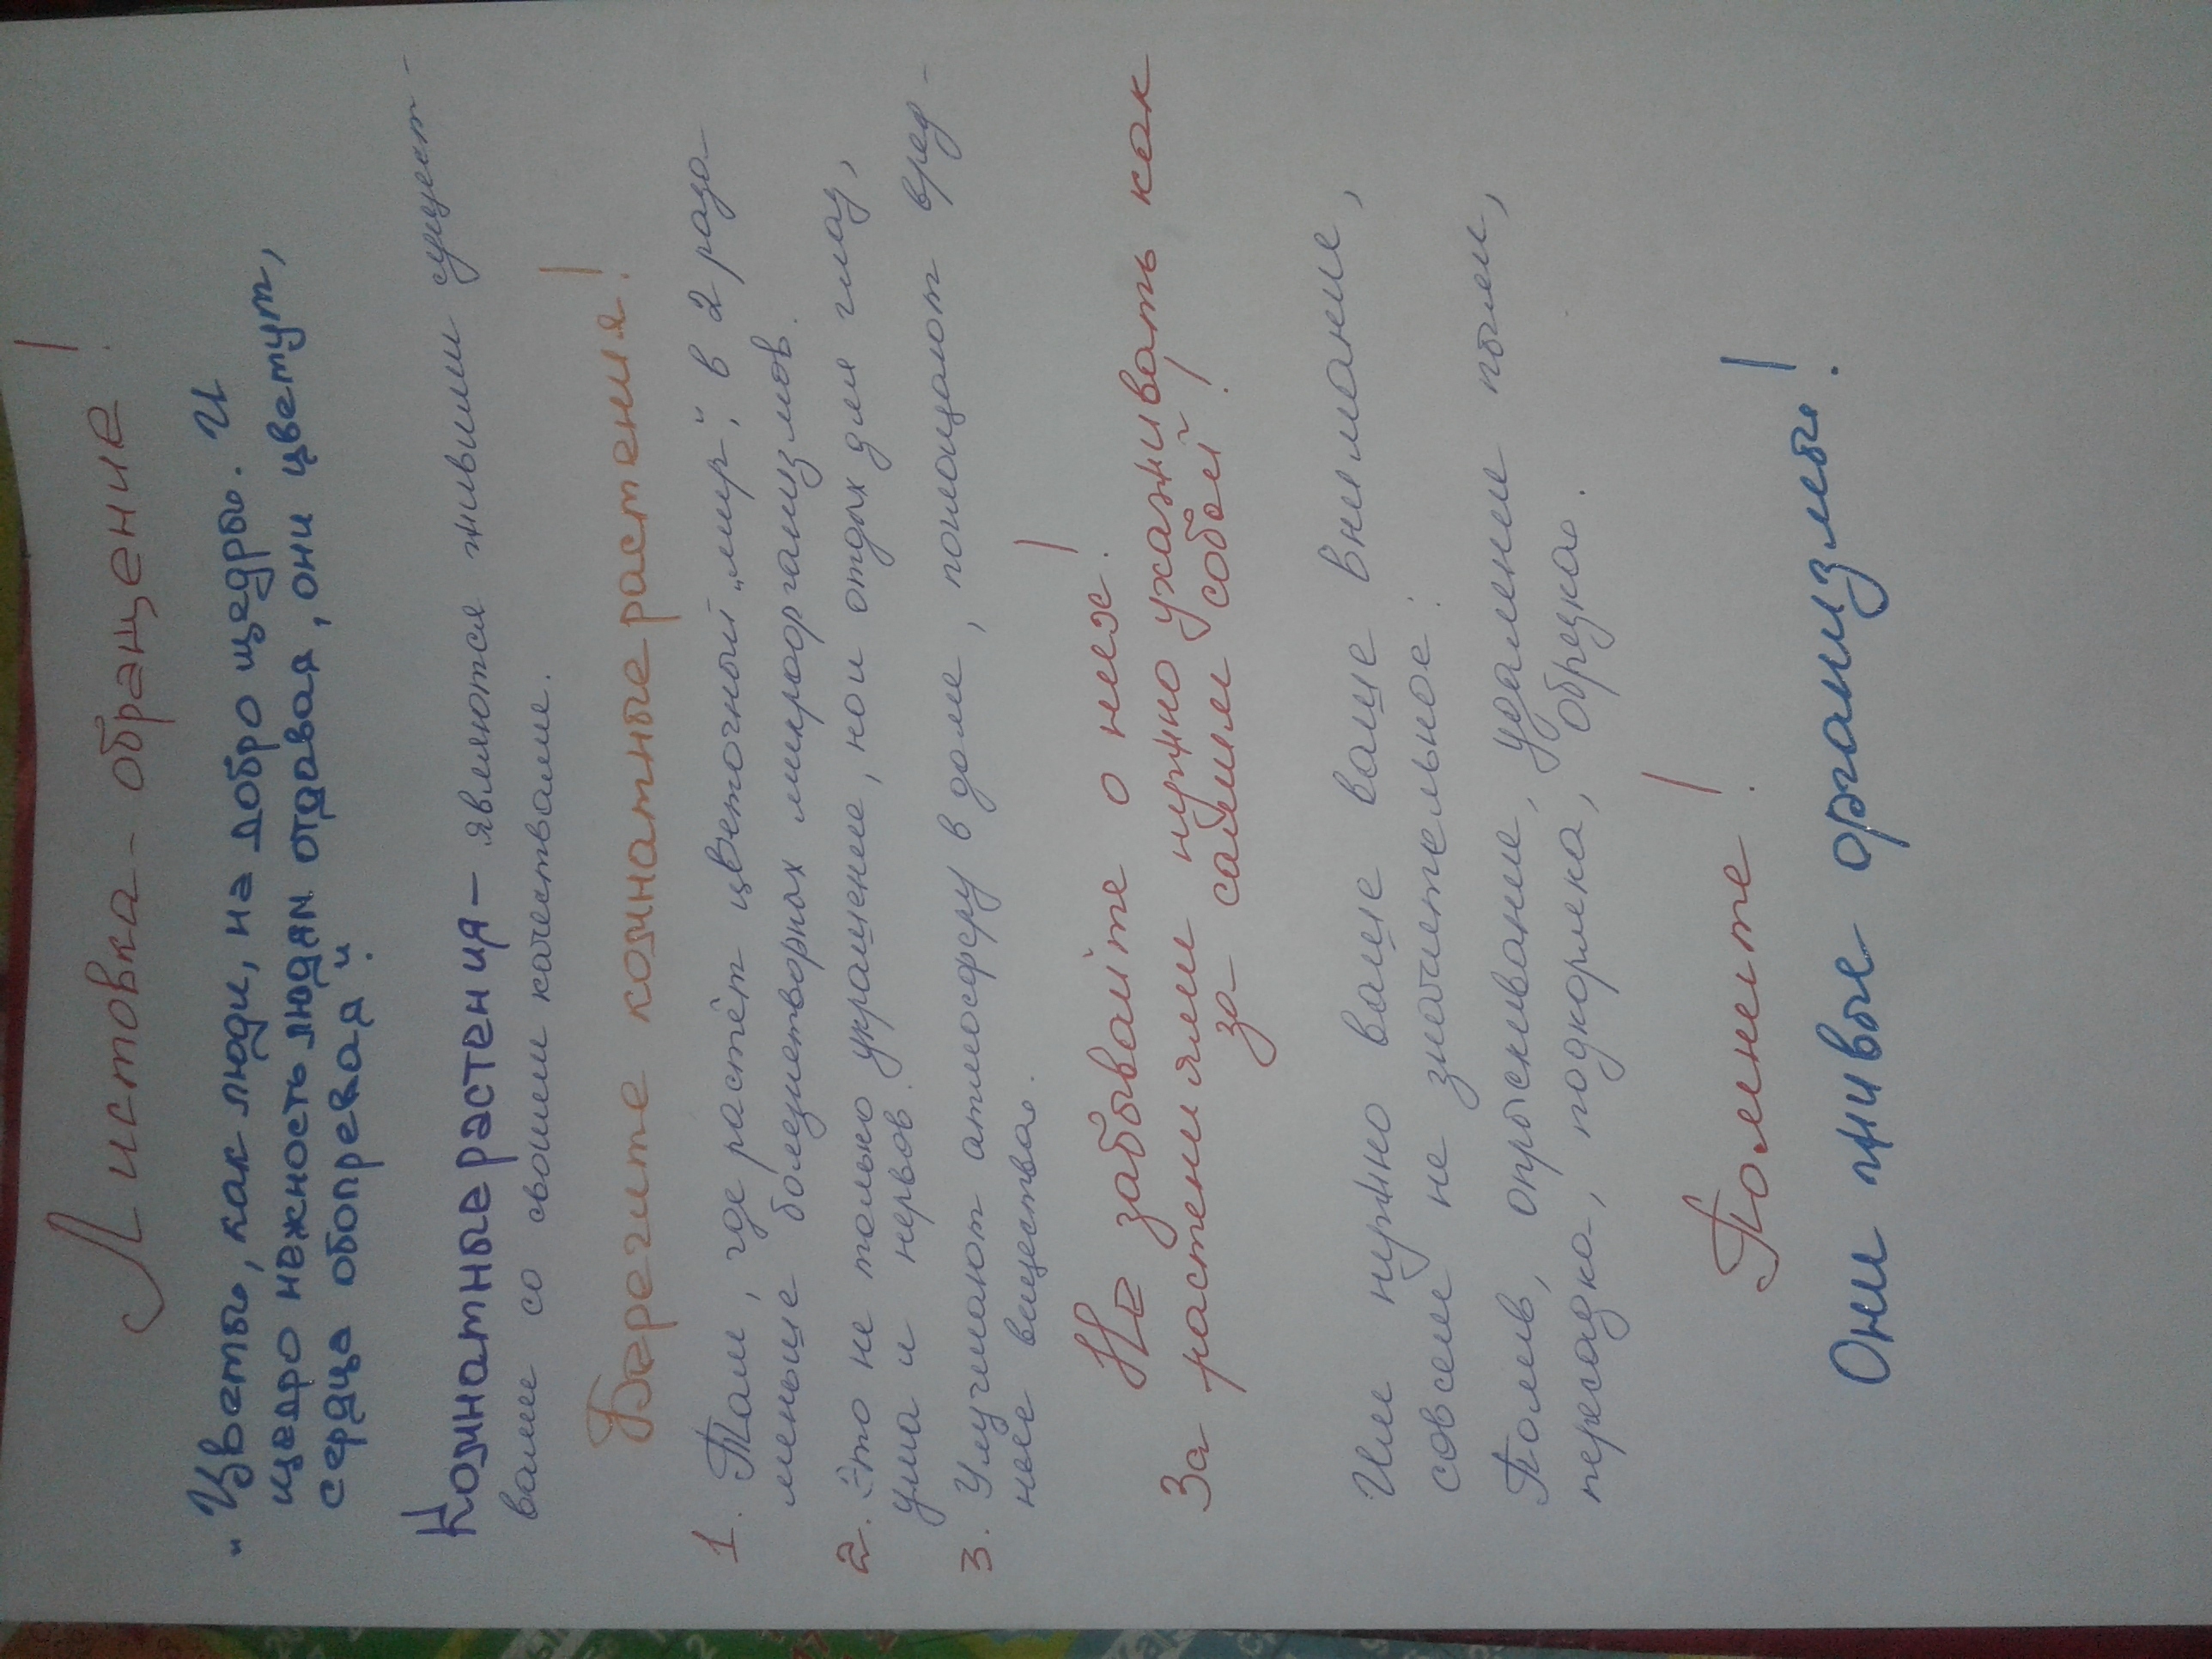 Листовка - обращение!
„Цветы, как люди, на добро щедры. И
щедро нежность людям отдавая, они цветут,
сердца обогревая".
Комнатные растения – являются живыми сущест-
вами со своими качествами.
Берегите комнатные растения!
1. Там, где растёт цветочный „мир", в 2 раза
меньше болезнетворных микроорганизмов.
2. Это не только украшение, но и отдых для глаз,
ума и нервов.
3. Улучшают атмосферу в доме, поглощают вред-
ные вещества.
Не забывайте о них!
За растениями нужно ухаживать как
за самим собой!
Им нужно ваше ваше внимание,
совсем не значительное:
Полив, опрыскивание, удаление пыли,
пересадка, подкормка, обрезка.
Помните!
Они живые организмы!